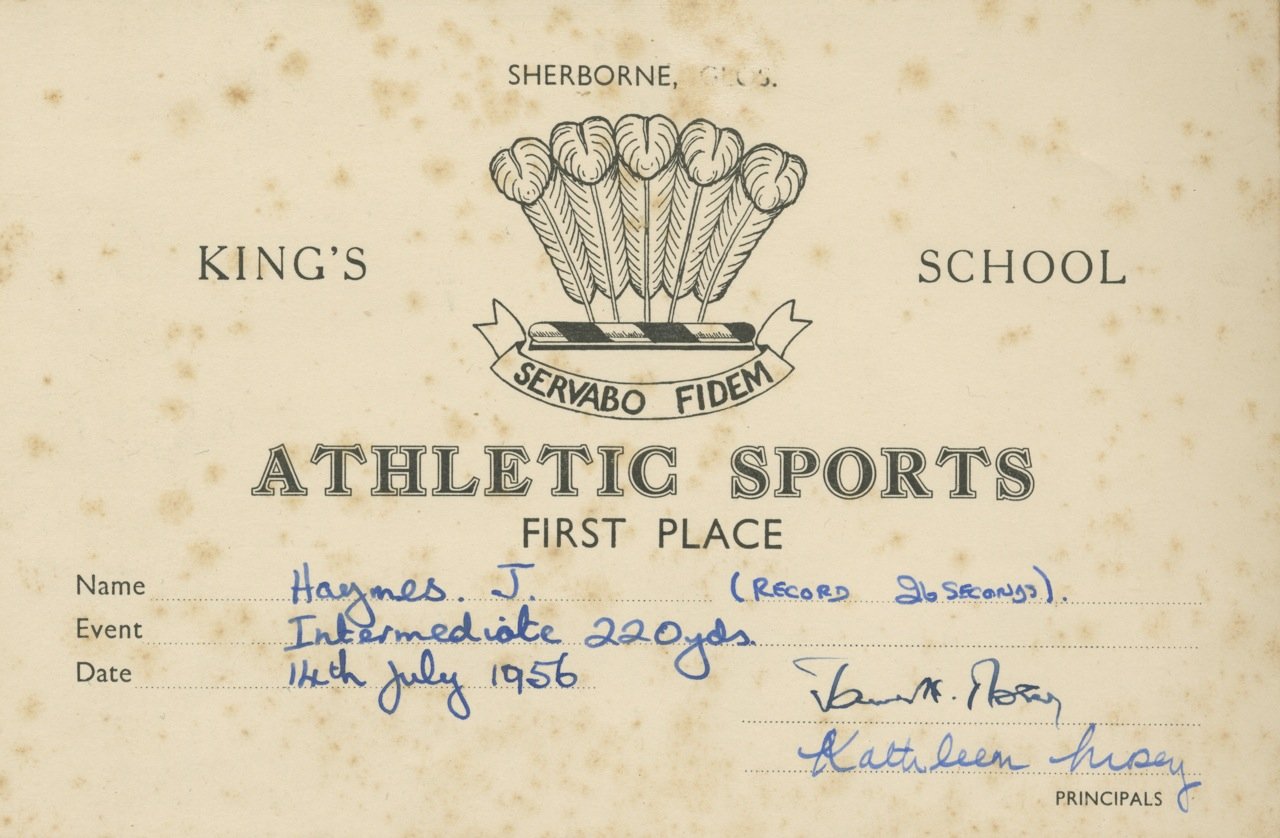 SHERBORNE, GLOS.
KING'S SCHOOL
SERVABO FIDEM
ATHLETIC SPORTS
FIRST PLACE
Name Haymes. J. (RECORD 26 SECONDS).
Event Intermediate 220yds.
Date 14th July 1956
Kathleen Mosey
PRINCIPALS